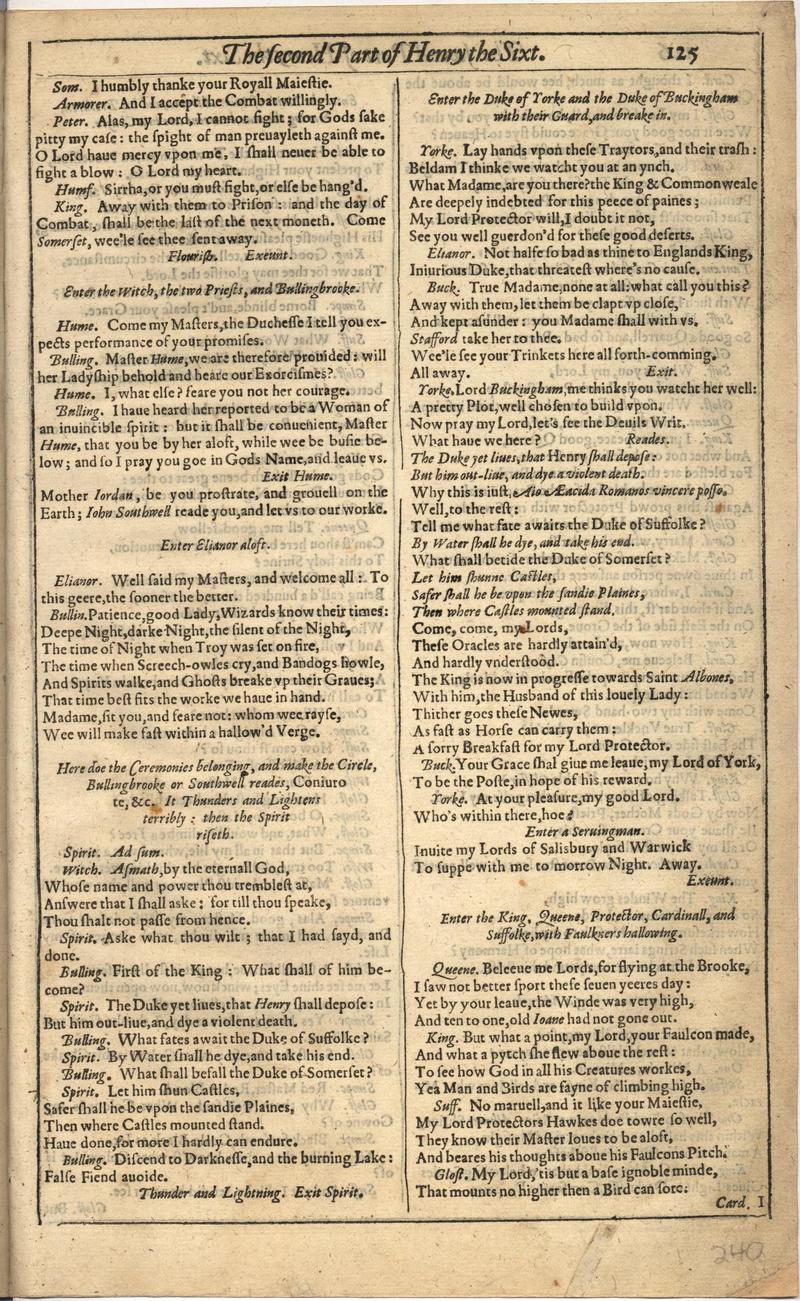 The ſecond Part of Henry the Sixt. 125
Som. I humbly thanke your Royall Maieſtie.
Armorer. And I accept the Combat willingly.
Peter. Alas, my Lord, I cannot fight; for Gods ſake
pitty my caſe: the ſpight of man preuayleth againſt me.
O Lord haue mercy vpon me, I ſhall neuer be able to
fight a blow: O Lord my heart.
Humf. Sirrha, or you muſt fight, or elſe be hang'd.
King. Away with them to Priſon: and the day of
Combat, ſhall be the laſt of the next moneth. Come
Somerſet, wee'le ſee thee ſent away.
Flouriſh. Exeunt.
Enter the Witch, the two Prieſts, and Bullingbrooke.
Hume. Come my Maſters, the Ducheſſe I tell you ex-
pects performance of your promiſes.
Bulling. Maſter Hume, we are therefore prouided: will
her Ladyſhip behold and heare our Exorciſmes?
Hume. I, what elſe? feare you not her courage.
Bulling. I haue heard her reported to be a Woman of
an inuincible ſpirit: but it ſhall be conuenient, Maſter
Hume, that you be by her aloft, while wee be buſie be-
low; and ſo I pray you goe in Gods Name, and leaue vs.
Exit Hume.
Mother Iordan, be you proſtrate, and grouell on the
Earth; Iohn Southwell reade you, and let vs to our worke.
Enter Elianor aloft.
Elianor. Well ſaid my Maſters, and welcome all: To
this geere, the ſooner the better.
Bullin. Patience, good Lady, Wizards know their times:
Deepe Night, darke Night, the ſilent of the Night,
The time of Night when Troy was ſet on fire,
The time when Screech-owles cry, and Bandogs howle,
And Spirits walke, and Ghoſts breake vp their Graues;
That time beſt fits the worke we haue in hand.
Madame, ſit you, and feare not: whom wee rayſe,
Wee will make faſt within a hallow'd Verge.
Here doe the Ceremonies belonging, and make the Circle,
Bullingbrooke or Southwell reades, Coniuro
te, &c. It Thunders and Lightens
terribly: then the Spirit
riſeth.
Spirit. Ad ſum.
Witch. Aſmath, by the eternall God,
Whoſe name and power thou trembleſt at,
Anſwere that I ſhall aske: for till thou ſpeake,
Thou ſhalt not paſſe from hence.
Spirit. Aske what thou wilt; that I had ſayd, and
done.
Bulling. Firſt of the King: What ſhall of him be-
come?
Spirit. The Duke yet liues, that Henry ſhall depoſe:
But him out-liue, and dye a violent death.
Bulling. What fates await the Duke of Suffolke?
Spirit. By Water ſhall he dye, and take his end.
Bulling. What ſhall befall the Duke of Somerſet?
Spirit. Let him ſhun Caſtles,
Safer ſhall he be vpon the ſandie Plaines,
Then where Caſtles mounted ſtand.
Haue done, for more I hardly can endure.
Bulling. Diſcend to Darkneſſe, and the burning Lake:
Falſe Fiend auoide.
Thunder and Lightning. Exit Spirit.
Enter the Duke of Yorke and the Duke of Buckingham
with their Guard, and breake in.
Yorke. Lay hands vpon theſe Traytors, and their traſh:
Beldam I thinke we watcht you at an ynch.
What Madame, are you there? the King & Commonweale
Are deepely indebted for this peece of paines;
My Lord Protector will, I doubt it not,
See you well guerdon'd for theſe good deſerts.
Elianor. Not halfe ſo bad as thine to Englands King,
Iniurious Duke, that threateſt where's no cauſe.
Buck. True Madame, none at all: what call you this?
Away with them, let them be clapt vp cloſe,
And kept aſunder: you Madame ſhall with vs.
Stafford take her to thee.
Wee'le ſee your Trinkets here all forth-comming.
All away. Exit.
Yorke. Lord Buckingham, me thinks you watcht her well:
A pretty Plot, well choſen to build vpon.
Now pray my Lord, let's ſee the Deuils Writ.
What haue we here? Reades.
The Duke yet liues, that Henry ſhall depoſe:
But him out-liue, and dye a violent death.
Why this is iuſt, Aio Æacida Romanos vincere poſſo.
Well, to the reſt:
Tell me what fate awaits the Duke of Suffolke?
By Water ſhall he dye, and take his end.
What ſhall betide the Duke of Somerſet?
Let him ſhunne Caſtles,
Safer ſhall he be vpon the ſandie Plaines,
Then where Caſtles mounted ſtand.
Come, come, my Lords,
Theſe Oracles are hardly attain'd,
And hardly vnderſtood.
The King is now in progreſſe towards Saint Albones,
With him, the Husband of this louely Lady:
Thither goes theſe Newes,
As faſt as Horſe can carry them:
A ſorry Breakfaſt for my Lord Protector.
Buck. Your Grace ſhal giue me leaue, my Lord of York,
To be the Poſte, in hope of his reward.
Yorke. At your pleaſure, my good Lord.
Who's within there, hoe?
Enter a Seruingman.
Inuite my Lords of Salisbury and Warwick
To ſuppe with me to morrow Night. Away.
Exeunt.
Enter the King, Queene, Protector, Cardinall, and
Suffolke, with Faulkners hallowing.
Queene. Beleeue me Lords, for flying at the Brooke,
I ſaw not better ſport theſe ſeuen yeeres day:
Yet by your leaue, the Winde was very high,
And ten to one, old Ioane had not gone out.
King. But what a point, my Lord, your Faulcon made,
And what a pytch ſhe flew aboue the reſt:
To ſee how God in all his Creatures workes,
Yea Man and Birds are fayne of climbing high.
Suff. No maruell, and it like your Maieſtie,
My Lord Protectors Hawkes doe towre ſo well,
They know their Maſter loues to be aloft,
And beares his thoughts aboue his Faulcons Pitch.
Gloſt. My Lord, 'tis but a baſe ignoble minde,
That mounts no higher then a Bird can ſore:
Card. I
240